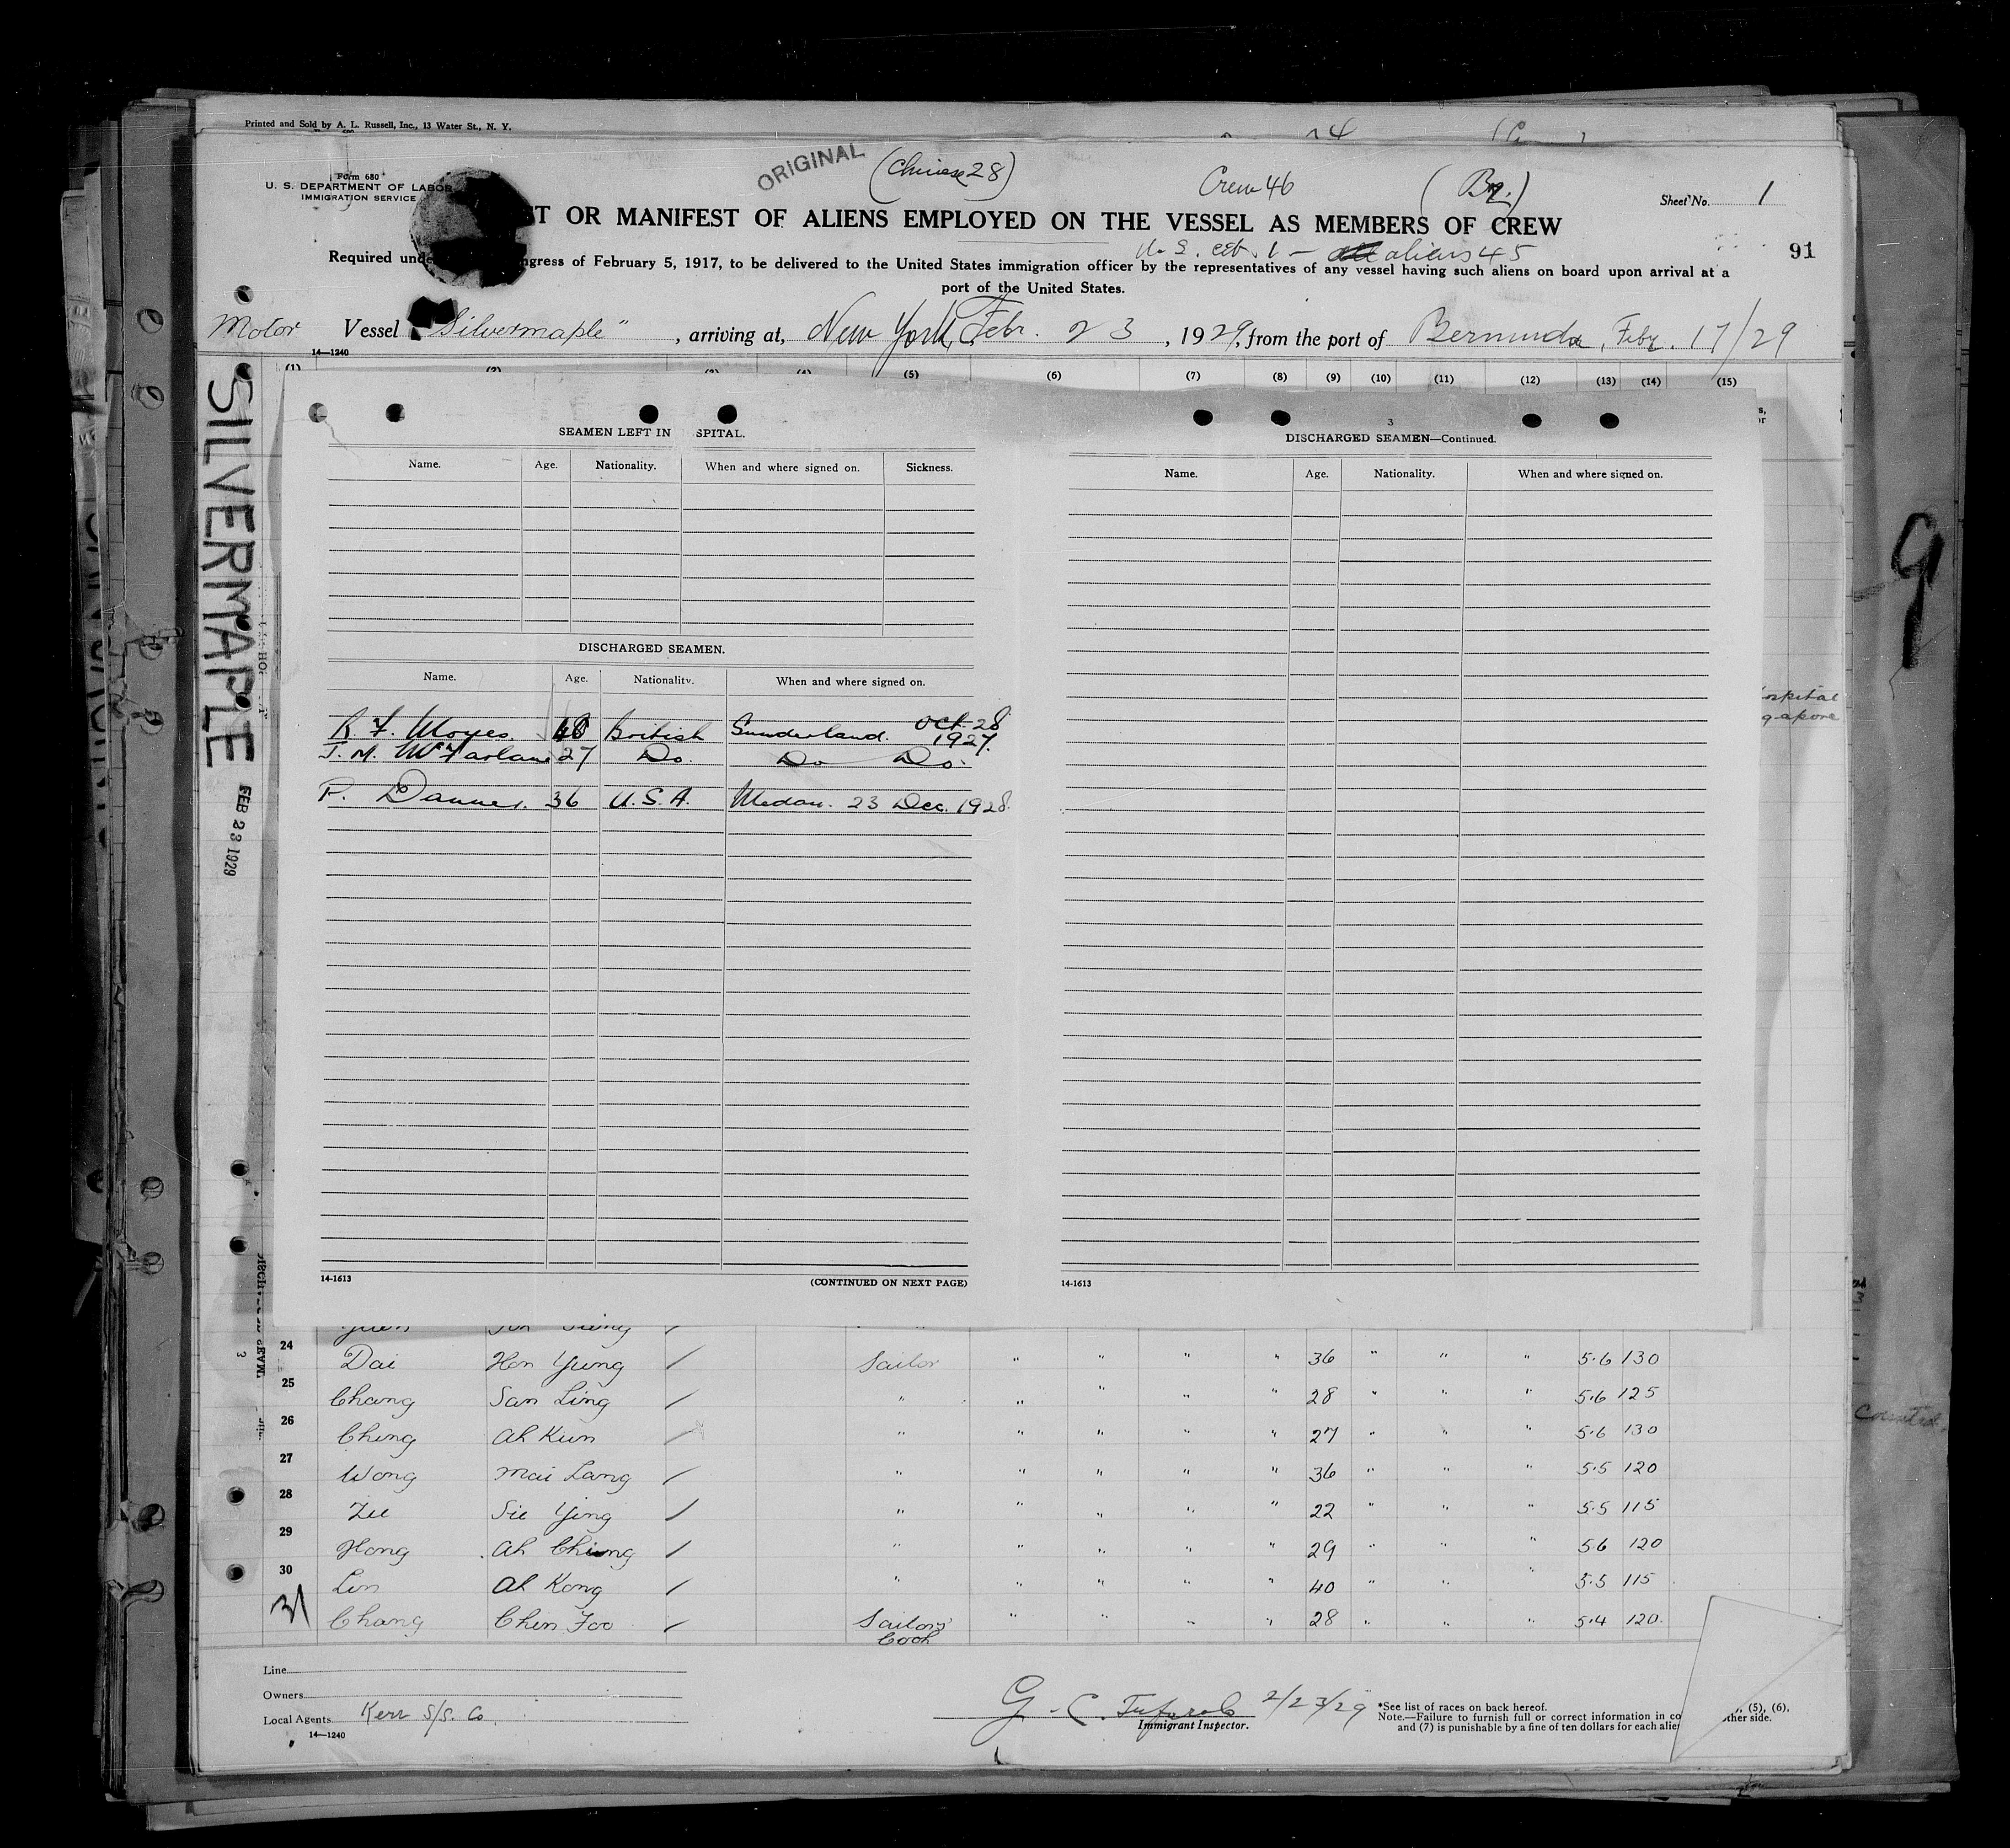 Printed and Sold by A. L. Russell, Inc., 13 Water St., N. Y.
Form 680
U. S. DEPARTMENT OF LABOR
IMMIGRATION SERVICE
ORIGINAL
(Chinese 28)
Crew 46
(Br.)
Sheet No. 1
ST OR MANIFEST OF ALIENS EMPLOYED ON THE VESSEL AS MEMBERS OF CREW
U.S. cit. 1 — aliens 45
91
Required unde ngress of February 5, 1917, to be delivered to the United States immigration officer by the representatives of any vessel having such aliens on board upon arrival at a
port of the United States.
Motor Vessel "Silvermaple", arriving at, New York, Febr. 23, 1929, from the port of Bermuda, Feby. 17/29
14—1240
(5) (6) (7) (8) (9) (10) (11) (12) (13) (14) (15)
SILVERMAPLE
FEB 23 1929
SEAMEN LEFT IN SPITAL.
Name. Age. Nationality. When and where signed on. Sickness.
DISCHARGED SEAMEN.
Name. Age. Nationality. When and where signed on.
R. F. Moyes. 48 British Sunderland. Oct. 28 1927.
J. M. McFarlane 27 Do. Do Do.
P. 36 U.S.A. Medan. 23 Dec. 1928.
14-1613
(CONTINUED ON NEXT PAGE)
3
DISCHARGED SEAMEN—Continued.
Name. Age. Nationality. When and where signed on.
14-1613
24 Dai Hon Yung / Sailor " " " " 36 " " " 5.6 130
25 Chang San Ling / " " " " " 28 " " " 5.6 125
26 Ching Ah Kun / " " " " " 27 " " " 5.6 130
27 Wong Mai Lang / " " " " " 36 " " " 5.5 120
28 Zee Sie Ying / " " " " " 22 " " " 5.5 115
29 Hong Ah Chung / " " " " " 29 " " " 5.6 120
30 Lin Ah Kong / " " " " " 40 " " " 5.5 115
31 Chang Chen Foo / Sailors' Cook " " " " 28 " " " 5.4 120
Line
Owners
Local Agents Kerr S/S. Co.
14—1240
G. C. 2/23/29
Immigrant Inspector.
*See list of races on back hereof.
Note.—Failure to furnish full or correct information in co , (5), (6),
and (7) is punishable by a fine of ten dollars for each alien other side.